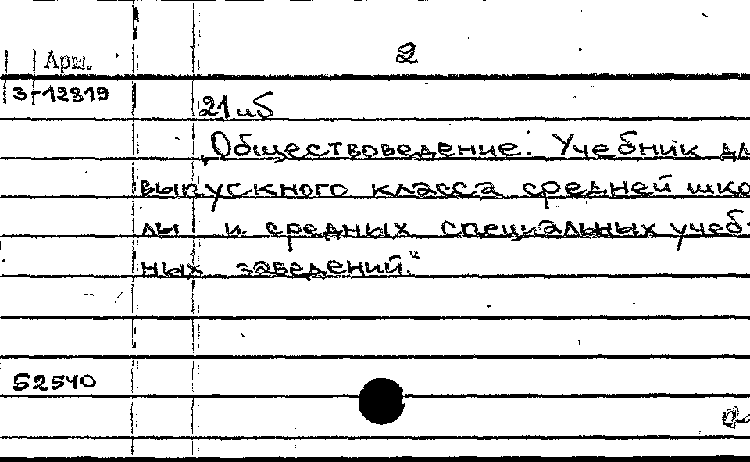 2
Арм.
3-12819
21 иб
„Обществоведение. Учебник дл
выпускного класса средней шко
лы и средних специальных учеб
ных заведений."
52540